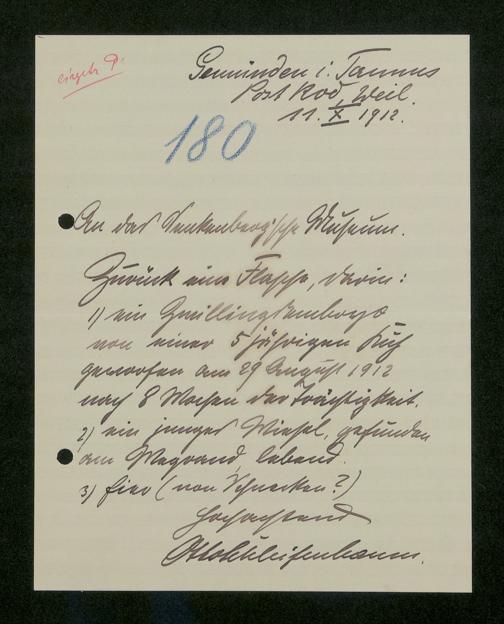 eingetr. P.
Gemünden i. Taunus
Post Rod, Weil.
11. X 1912.
180
An das Senkenberg'sche Museum.
Zurück eine Flasche, darin:
1) ein Zwillingsembryo
von einer 5 jährigen Kuh
geworfen am 29 August 1912
nach 8 Wochen der Trächtigkeit.
2) ein junges Wiesel, gefunden
am Wegrand, lebend.
3) Eier (von Schnecken?)
Hochachtend
Otto Schleifenbaum.